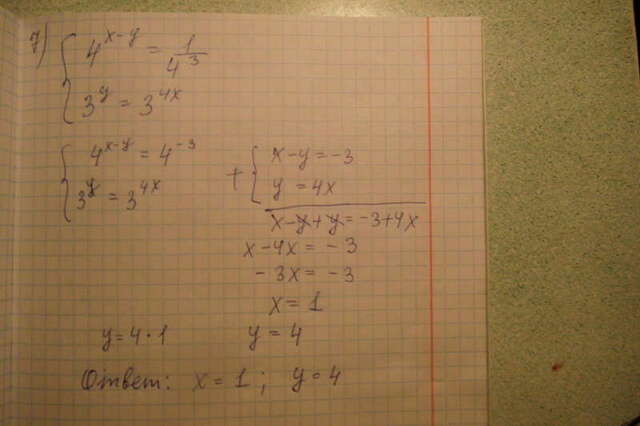 7) { 4^{x-y} = 1/4^3
3^y = 3^{4x}
{ 4^{x-y} = 4^{-3}
3^y = 3^{4x}
+ { x-y = -3
y = 4x
x-y+y = -3+4x
x-4x = -3
-3x = -3
x = 1
y = 4·1 y = 4
Ответ: x = 1; y = 4